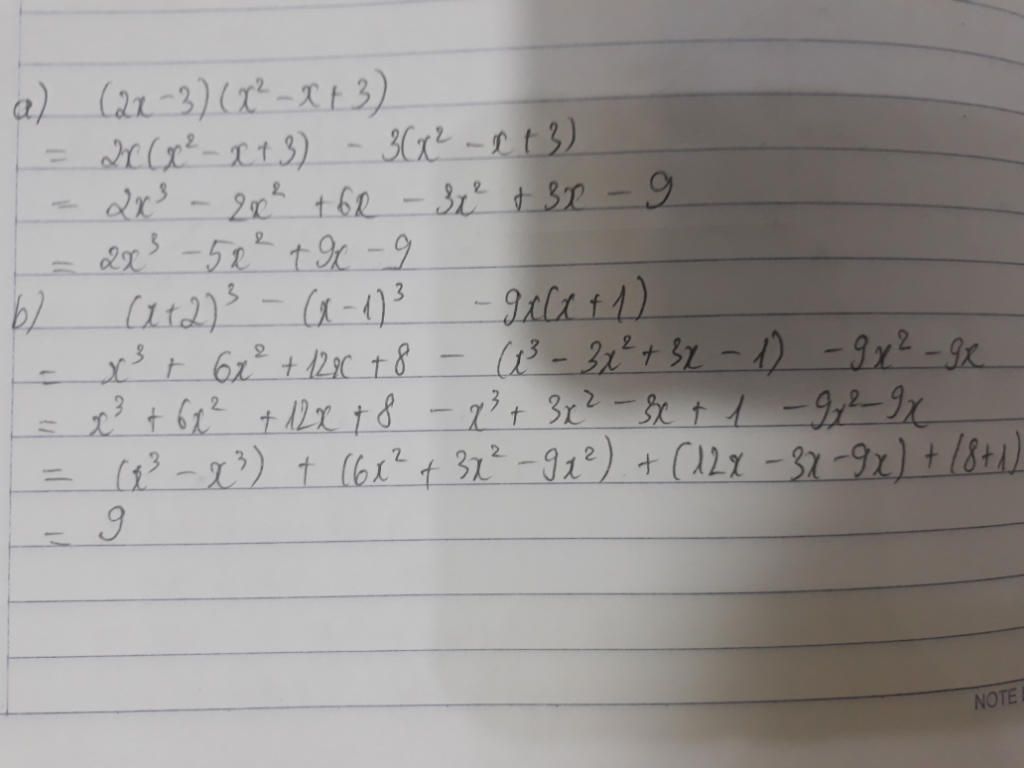 a) (2x-3)(x² - x + 3)
= 2x(x² - x + 3) - 3(x² - x + 3)
= 2x³ - 2x² + 6x - 3x² + 3x - 9
= 2x³ - 5x² + 9x - 9
b) (x+2)³ - (x-1)³ - 9x(x+1)
= x³ + 6x² + 12x + 8 - (x³ - 3x² + 3x - 1) - 9x² - 9x
= x³ + 6x² + 12x + 8 - x³ + 3x² - 3x + 1 - 9x² - 9x
= (x³ - x³) + (6x² + 3x² - 9x²) + (12x - 3x - 9x) + (8+1)
= 9
NOTE